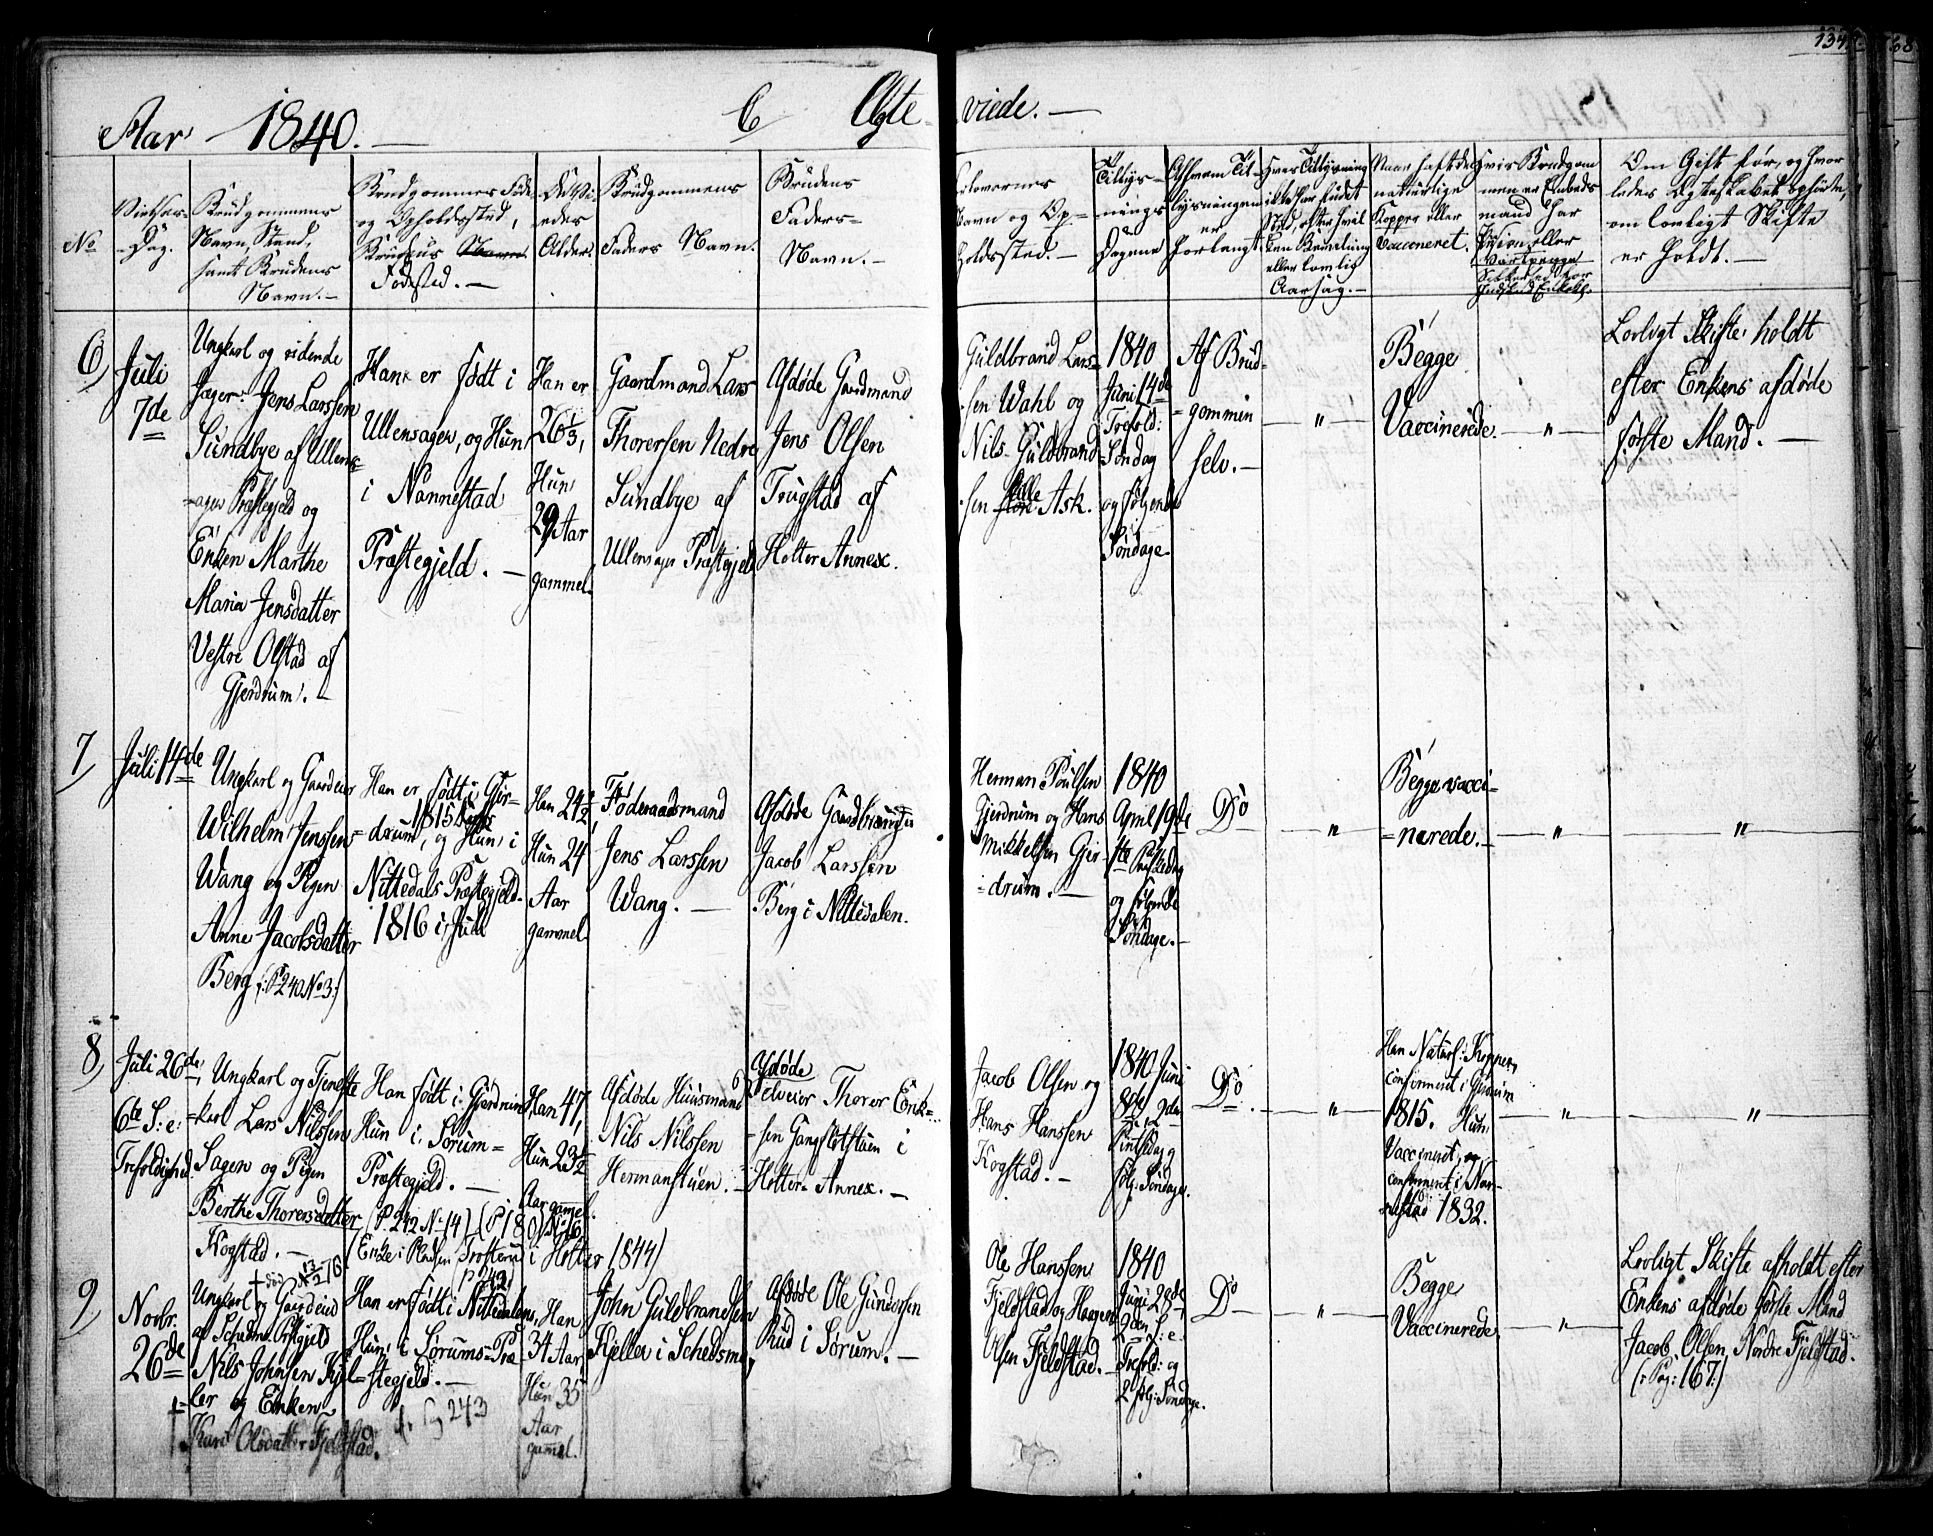 134
Aar 1840. —
C
Ægte-viede. —
No
Vielses-
Dag.
Brudgommens
Navn, Stand,
samt Brudens
Navn. —
Brudgommens Føde-
og Opholdssted,
Brudens Navn
Fødested. —
De Vi-
edes
Alder.
Brudgommens
Faders Navn.
Brudens
Faders-
Navn. —
Forlovernes
Navn og Op-
holdssted. —
Tillys-
nings
Dagene
Af hvem Til-
lysningen
er
forlangt
Hvis Tillysning
ikke har fundet
Sted, efter hvil-
ken Bevilling
eller lovlig
Aarsag. —
Naar havt de
naturlige
Kopper eller
Vaccineret.
Hvis Brudgom
men er Embeds
mand har
Om Gift før, og hvor
ledes Ægteskabet ophørte,
om lovligt Skifte
er holdt. —
6)
Juli
7de
Ungkarl og ridende
Jæger: Jens Larssen
Sundbye af Ullens-
-ager Præstegjeld og
Enken Marthe
Maria Jensdatter
Vestre Olstad af
Gjerdrum. —
Han er født i
Ullensager, og Hun
i Nannestad
Præstegjeld. —
Han er
26 1/3,
Hun
29 Aar
gammel.
Gaardmand Lars
Thorersen Nedre
Sundbye af
Ullensager Præstegjeld
Afdøde Gaardmand
Jens Olsen
Trugstad af
Holter Annex.
Guldbrand Lars-
-sen Wahl og
Nils Guldbrand-
-sen store lille Ask.
1840
Juni 14de
Trefold:
Søndag
og følgende
Søndage
Af Brud-
-gommen
selv. —
— " —
Begge
Vaccinerede.
— " —
Lovligt Skifte holdt
efter Enkens afdøde
første Mand. —
7)
Juli 14de
Ungkarl og Gaardeier
Wilhelm Jenssen
Wang og Pigen
Anne Jacobsdatter
Berg (: P 240 No 3:)
Han er født i Gjer-
1815
drum, og Hun i
Nittedals Præstegjeld.
1816 i Juli
Han 24 1/2,
Hun 24
Aar
gammel.
Føderaadsmand
Jens Larssen
Wang. —
Afdøde
Jacob Larssen
Berg i Nittedalen.
Herman Poulsen
Gjerdrum og Hans
Mikkelsen Gjer-
-drum. —
1840
April 19de
1te Paaskedag
og følgende
Søndage. —
Do
— " —
Begge vacci-
-nerede. —
— " —
— " —
8)
Juli 26de,
6te S: e:
Trefoldighed.
Ungkarl og Tjeneste
-karl Lars Nilssen
Sagen og Pigen
Berthe Thorersdatter
Kogstad. —
Han født i Gjerdrum
Hun i Sørum-
Præstegjeld. —
(P. 242 No 14) (P 180 No 16)
(Enke i Pladsen Trosterud i Holter 1844)
Han 47,
Hun 23 1/2
Aar gamel.
Afdøde Huusmand
Nils Nilssen
Hermanstuen. —
Afdøde
Selveier Thorer Erik-
-sen Gangsløtstuen i
Holter-Annex. —
Jacob Olsen og
Hans Hanssen
Kogstad. —
1840 Juni
8de, 2den
Pintsedag
følg: Søndage.
Do
— " —
Han Naturl: Kopper,
confirmeret i Gjerdrum
1815. Hun
Vaccineret, og
confirmeret i Nan-
nestad 1832.
— " —
"
9)
Novbr.
26de
+ død 13/2 76
Ungkarl og Gaardeier
af Schedsmo Prstgjeld
Nils Johnsen Kjel-
ler og Enken
Kari Olsdatter Fjeldstad.
Han er født i Nittedalens,
Hun i Sørums-Præ-
-stegjeld. —
243
Han
34 Aar
Hun 35
Aar
gamel.
John Guldbrandsen
Kjeller i Schedsmo,
Afdøde Ole Gundersen
Rud i Sørum. —
Ole Hanssen
Fjeldstad og Haagen
Olsen Fjeldstad. —
1840
Juni 28de
2den S: e:
Trefold: og
2 følg: Søndage.
Do
— " —
Begge
Vaccinerede
— " —
Lovligt Skifte afholdt efter
Enkens afdøde første Mand
Jacob Olsen Nordre Fjeldstad.
(: Pag: 167:)